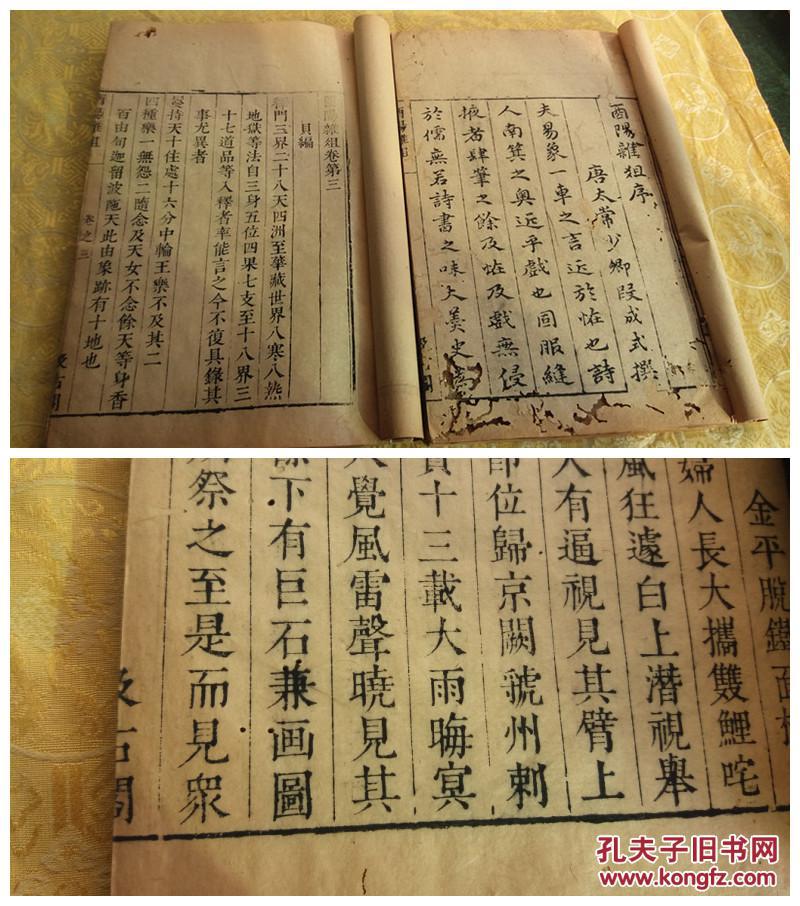 酉陽雜俎序
唐太常少卿段成式撰
夫易象一車之言近於怪也詩
人南箕之奥近乎戲也固服縫
掖者肆筆之餘及怪及戲無侵
於儒無若詩書之味大羹史為
酉陽雜俎
雜俎卷第三
貝編
釋門三界二十八天四洲至華藏世界八寒八熱
地獄等法自三身五位四果七支至十八界三
十七道品等入釋者率能言之今不復具錄其
事尤異者
鬘持天十住處十六分中輪王樂不及其二
四種樂一無怨二隨念及天女不念餘天等身香
百由旬迦留波陁天此由象跡有十地也
酉陽雜俎 卷之三 汲古閣
金平腕鐺面
婦人長大攜雙鯉咤
風狂遽白上潛視舉
人有逼視見其臂上
即位歸京闕虢州刺
十三載大雨晦冥
人覺風雷聲曉見其
下有巨石兼画圖
祭之至是而見衆
汲古閣
孔夫子旧书网
www.kongfz.com